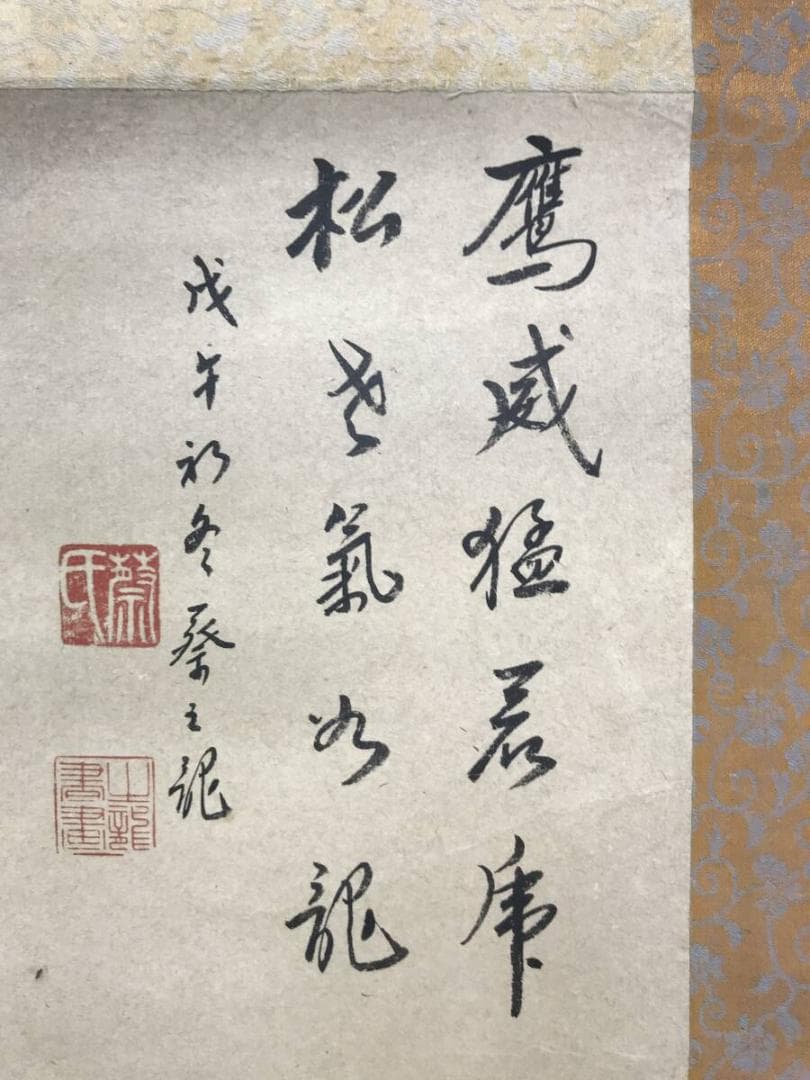 鹰威猛若虎
松老氣如龍
戊午初冬蔡之龍
蔡氏
之龍書畫